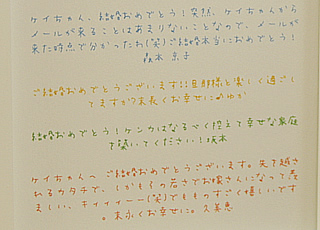 ケイちゃん、結婚おめでとう！突然、ケイちゃんから
メールが来ることはあまりないことなので、メールが
来た時点で分かったわ(笑)ご結婚本当におめでとう！
森本 京子
ご結婚おめでとうございます!!旦那様と楽しく過ごし
てますか?末長くお幸せに♪ゆか
結婚おめでとう！ケンカはなるべく控えて幸せな家庭
を築いてください！塚本
ケイちゃんへ ご結婚おめでとうございます。先を越さ
れるカタチで、しかもその若さでお嫁さんになって羨
ましい、キィィィーー(笑)でもものすごく嬉しいです
。末永くお幸せに。久美恵